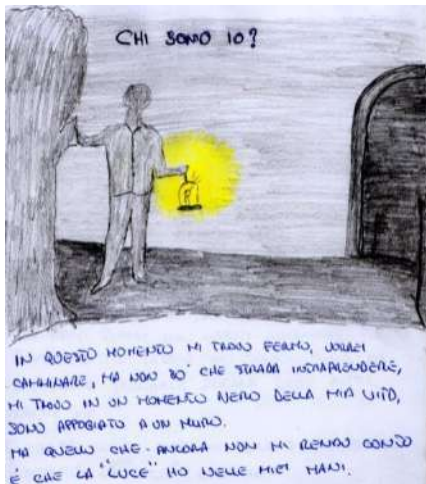 CHI SONO IO?
IN QUESTO MOMENTO MI TROVO FERMO, VORREI
CAMMINARE, MA NON SO' CHE STRADA INTRAPRENDERE,
MI TROVO IN UN MOMENTO NERO DELLA MIA VITA,
SONO APPOGIATO A UN MURO.
MA QUELLO CHE ANCORA NON MI RENDO CONTO
È CHE LA "LUCE" HO NELLE MIEI MANI.